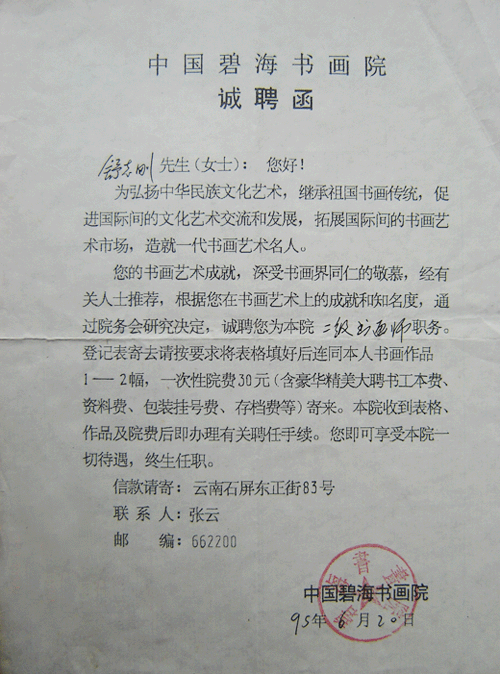 中国碧海书画院
诚聘函
舒志刚先生(女士): 您好!
为弘扬中华民族文化艺术, 继承祖国书画传统, 促
进国际间的文化艺术交流和发展, 拓展国际间的书画艺
术市场, 造就一代书画艺术名人。
您的书画艺术成就, 深受书画界同仁的敬慕, 经有
关人士推荐, 根据您在书画艺术上的成就和知名度, 通
过院务会研究决定, 诚聘您为本院 二级书画师 职务。
登记表寄去请按要求将表格填好后连同本人书画作品
1—2幅, 一次性院费30元(含豪华精美大聘书工本费、
资料费、包装挂号费、存档费等)寄来。本院收到表格、
作品及院费后即办理有关聘任手续。您即可享受本院一
切待遇, 终生任职。
信款请寄: 云南石屏东正街83号
联 系 人: 张云
邮 编: 662200
中国碧海书画院
95年6月20日